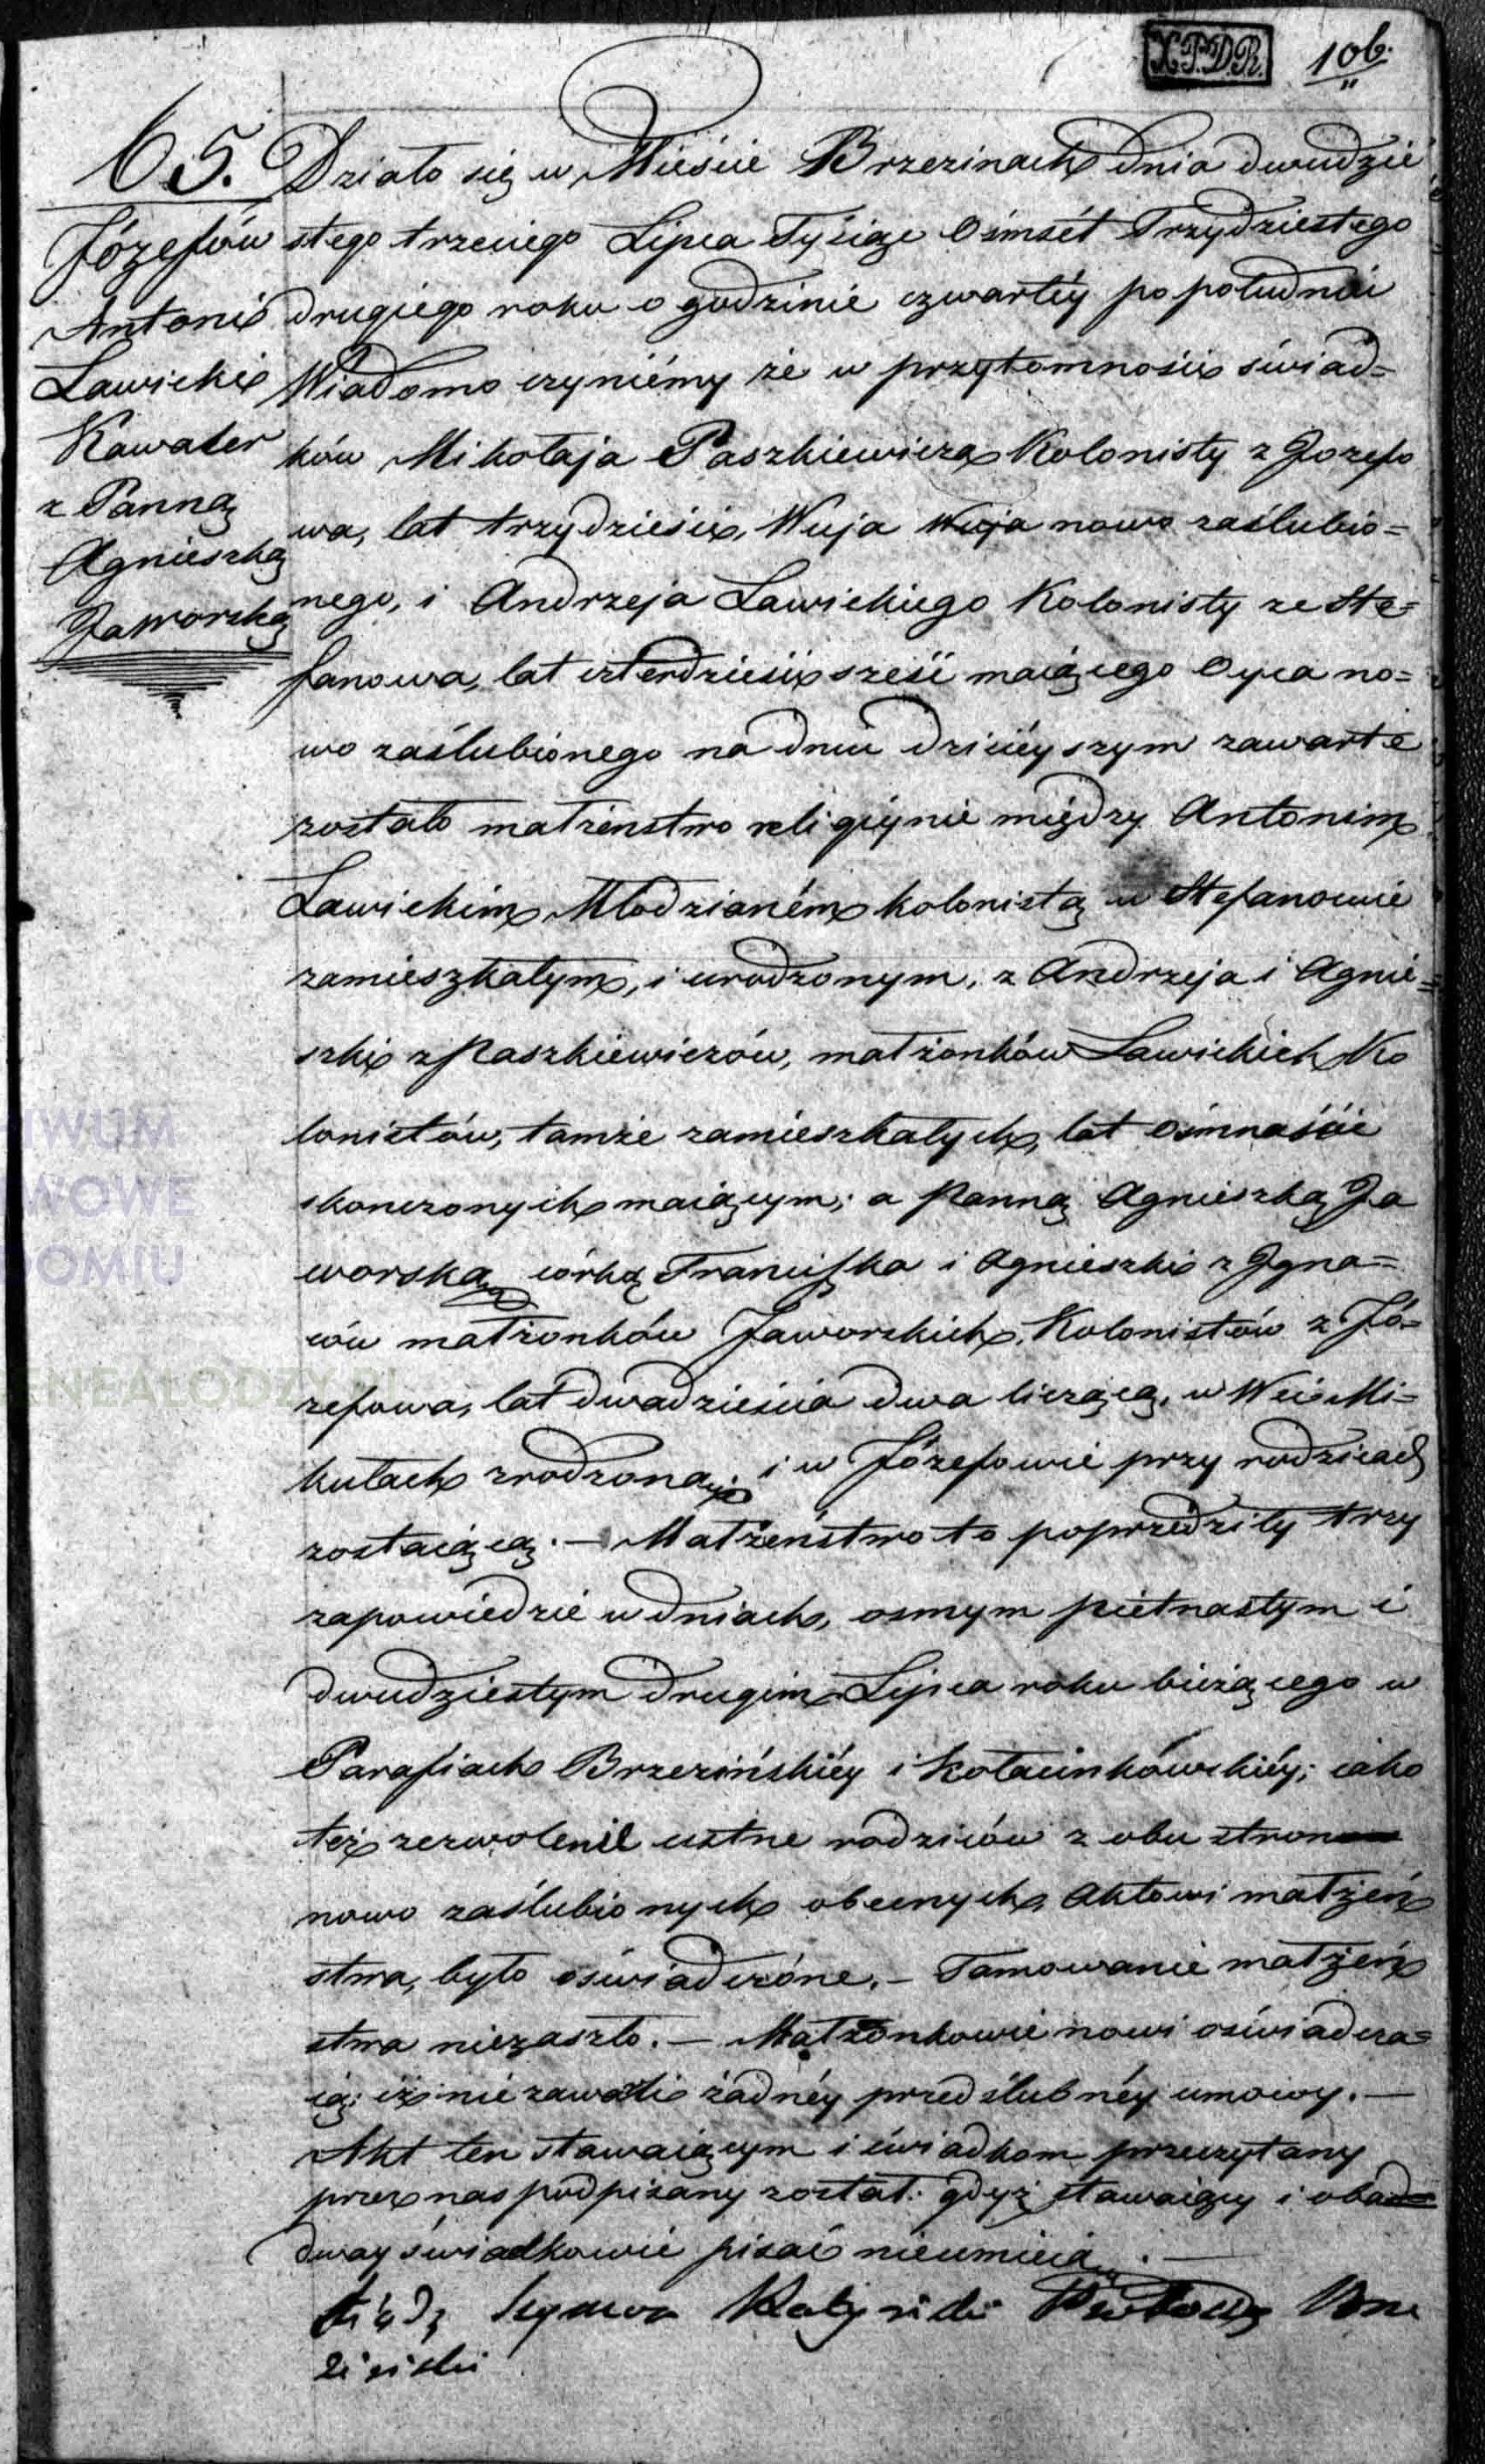 X.P.D.R.
106.
65.
Józefów
Antoni
Lawicki
Kawaler
z Panną
Agnieszką
Jaworską
Działo się w Mieście Brzezinach dnia dwudzie
stego trzeciego Lipca Tysiąc Ośmset Trzydziestego
drugiego roku o godzinie czwartéy po południu
Wiadomo czyniémy że w przytomności świad=
ków Mikołaja Paszkiewicza Kolonisty z Jozefo
wa, lat trzydzieści, Wuja Wuja nowo zaślubio=
nego, i Andrzeja Lawickiego Kolonisty ze Ste=
fanowa, lat czterdzieści sześć maiącego Oyca no=
wo zaślubionego na dniu dzisiéyszym zawarte
zostało małżenstwo religiynie między Antonim
Lawickim Młodzianém kolonistą w Stefanowie
zamieszkałym, i urodzonym, z Andrzeja i Agnie=
szki z Paszkiewiczów, małżonków Lawickich Ko
lonistów, tamże zamieszkałych, lat ośmnaście
skonczonych maiącym; a Panną Agnieszką Ja
worską córką Franciszka i Agnieszki z Igna=
ców małżonków Jaworskich, Kolonistów z Jó=
zefowa, lat dwadzieścia dwa liczącą, w Wsi Mi=
kułach zrodzoną; i w Józefowie przy rodzicach
zostaiącą. — Małżeństwo to poprzedziły trzy
zapowiedzie w dniach, osmym pietnastym i
dwudziestym drugim Lipca roku bieżącego w
Parafiach Brzezińskiéy i Kołacinkówskiéy; iako
też zezwolenie ustne rodziców z obu stron
nowo zaślubionych obecnych Aktowi małżeń
stwa, było oświadczóne. — Tamowanie małżeń
stwa niezaszło. — Małżonkowie nowi oświadcza=
ią; iż nie zawarli żadnéy przedślubnéy umowy. —
Akt ten stawaiącym i świadkom przeczytany
przez nas podpisany został: gdyż stawaiący i obad
dway świadkowie pisać nieumieią. —
Xiądz Szymon